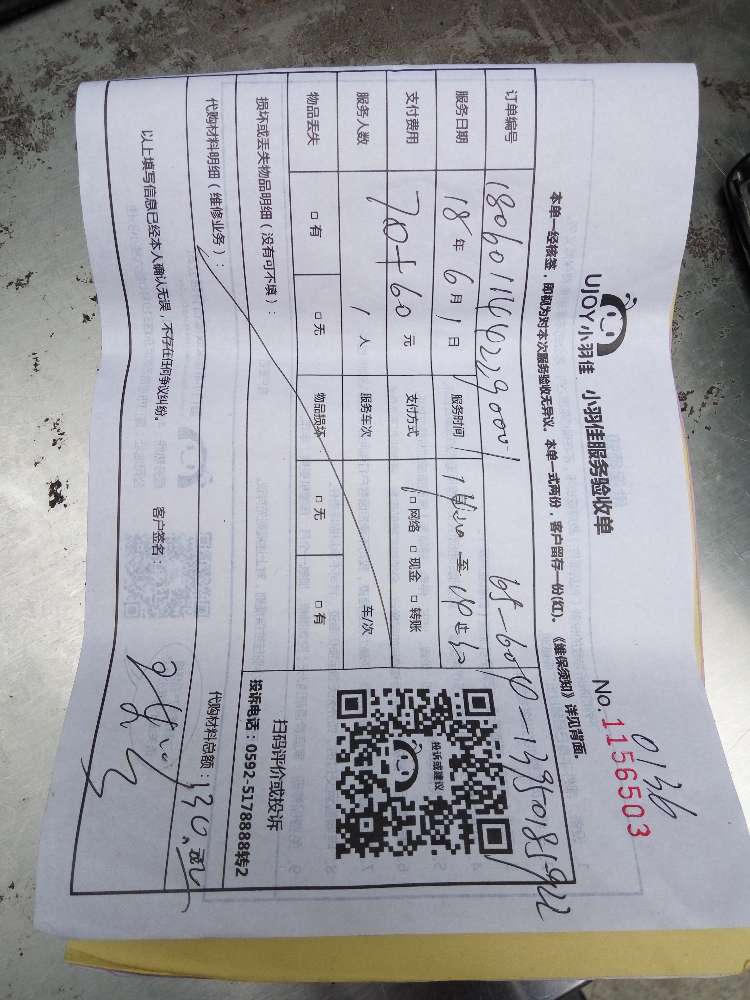 UJOY小羽佳 小羽佳服务验收单
0136
No.1156503
本单一经核签，即视为对本次服务验收无异议，本单一式两份，客户留存一份(红)。《维保须知》详见背面。
订单编号
服务日期 18 年 6 月 1 日 服务时间 至
支付费用 70+60 元 支付方式 □ 网络 □ 现金 □ 转账
服务人数 1 人 服务车次 车/次
物品丢失 □ 有 □ 无 物品损坏 □ 无 □ 有
投诉或建议
扫码评价或投诉
投诉电话：0592-5178888转2
损坏或丢失物品明细（没有可不填）：
代购材料明细（维修业务）： 代购材料总额：130
以上填写信息已经本人确认无误，不存在任何争议纠纷。 客户签名：